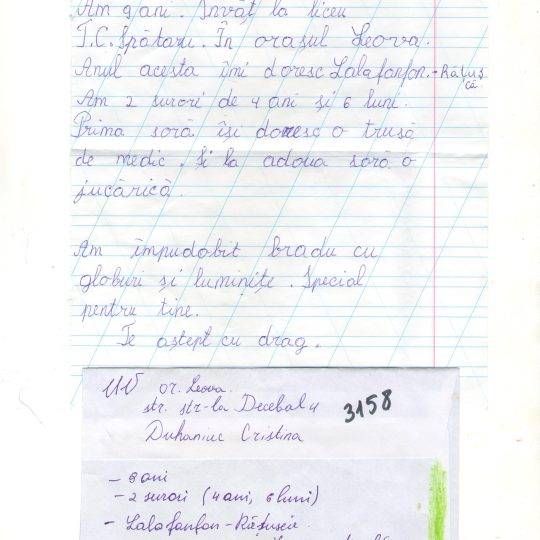 Am 9 ani. Învăț la liceu
I.C. Spătaru. În orașul Leova.
Anul acesta îmi doresc Lalafanfan. - Rățuș
că.
Am 2 surori de 4 ani și 6 luni.
Prima soră își doresc o trusă
de medic. Și la adoua soră o
jucărică.
Am împudobit bradu cu
globuri și luminițe. Special
pentru tine.
Te aștept cu drag.
or. Leova.
str. str-la Decebal 4
3158
Duhaniuc Cristina
- 9 ani
- 2 surori (4 ani, 6 luni)
- Lalafanfan - Rățușca